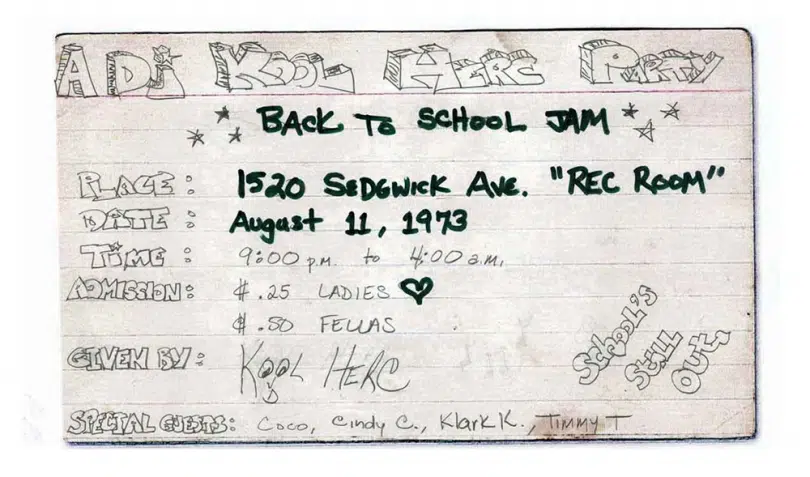 A DJ KOOL HERC PARTY
BACK TO SCHOOL JAM
PLACE: 1520 SEDGWICK AVE. "REC ROOM"
DATE: August 11, 1973
TIME: 9:00 p.m. to 4:00 a.m.
ADMISSION: $.25 LADIES ♡
$.50 FELLAS
GIVEN BY: KOOL HERC
SPECIAL GUESTS: Coco, Cindy C., Klark K., TIMMY T
School's
Still
Out.